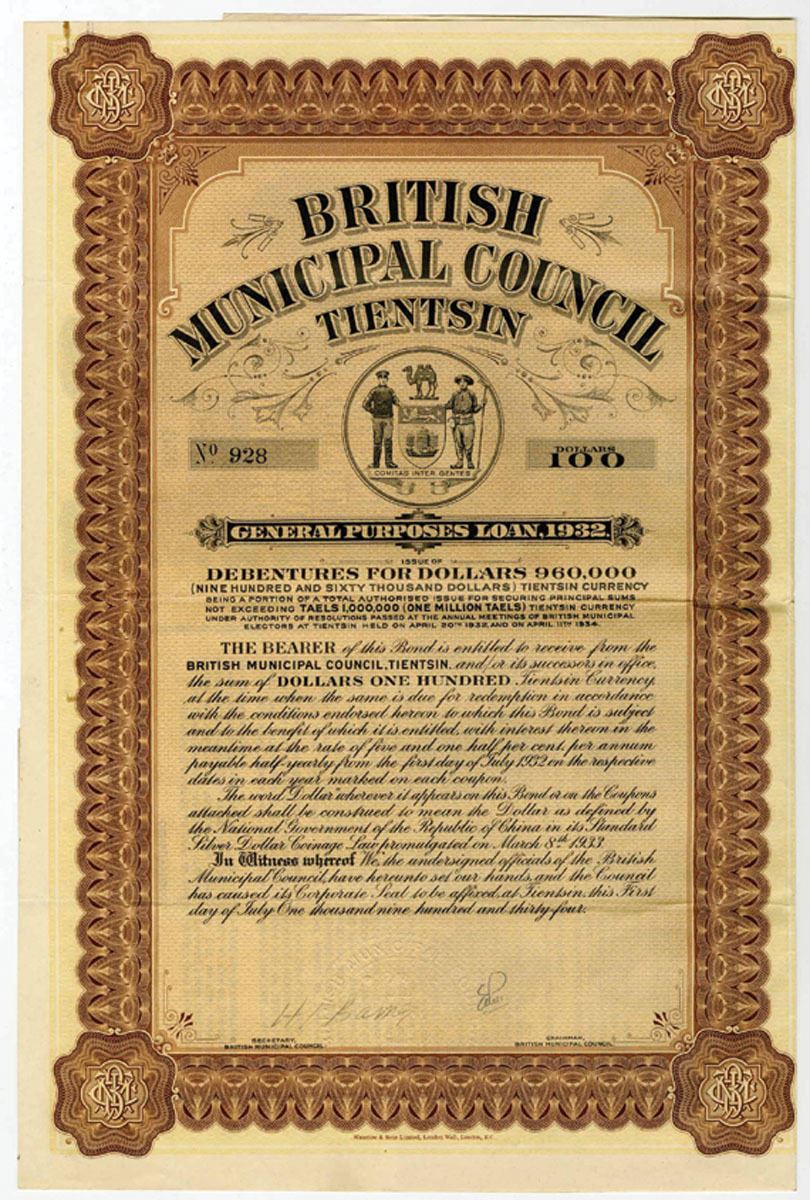 BRITISH
MUNICIPAL COUNCIL
TIENTSIN
No 928
DOLLARS
100
COMITAS INTER GENTES
GENERAL PURPOSES LOAN, 1932
ISSUE OF
DEBENTURES FOR DOLLARS 960,000
(NINE HUNDRED AND SIXTY THOUSAND DOLLARS) TIENTSIN CURRENCY
BEING A PORTION OF A TOTAL AUTHORISED ISSUE FOR SECURING PRINCIPAL SUMS
NOT EXCEEDING TAELS 1,000,000 (ONE MILLION TAELS) TIENTSIN CURRENCY
UNDER AUTHORITY OF RESOLUTIONS PASSED AT THE ANNUAL MEETINGS OF BRITISH MUNICIPAL
ELECTORS AT TIENTSIN HELD ON APRIL 20TH 1932, AND ON APRIL 11TH 1934.
THE BEARER of this Bond is entitled to receive from the
BRITISH MUNICIPAL COUNCIL, TIENTSIN, and/or its successors in office,
the sum of DOLLARS ONE HUNDRED Tientsin Currency,
at the time when the same is due for redemption in accordance
with the conditions endorsed hereon to which this Bond is subject
and to the benefit of which it is entitled, with interest thereon in the
meantime at the rate of five and one half per cent. per annum
payable half-yearly from the first day of July 1932 on the respective
dates in each year marked on each coupon.
The word "Dollar" wherever it appears on this Bond or on the Coupons
attached shall be construed to mean the Dollar as defined by
the National Government of the Republic of China in its Standard
Silver Dollar Coinage Law promulgated on March 8th 1933
In Witness whereof We, the undersigned officials of the British
Municipal Council, have hereunto set our hands, and the Council
has caused its Corporate Seal to be affixed, at Tientsin, this First
day of July One thousand nine hundred and thirty-four.
SECRETARY,
BRITISH MUNICIPAL COUNCIL.
CHAIRMAN,
BRITISH MUNICIPAL COUNCIL.
Waterlow & Sons Limited, London Wall, London, E.C.